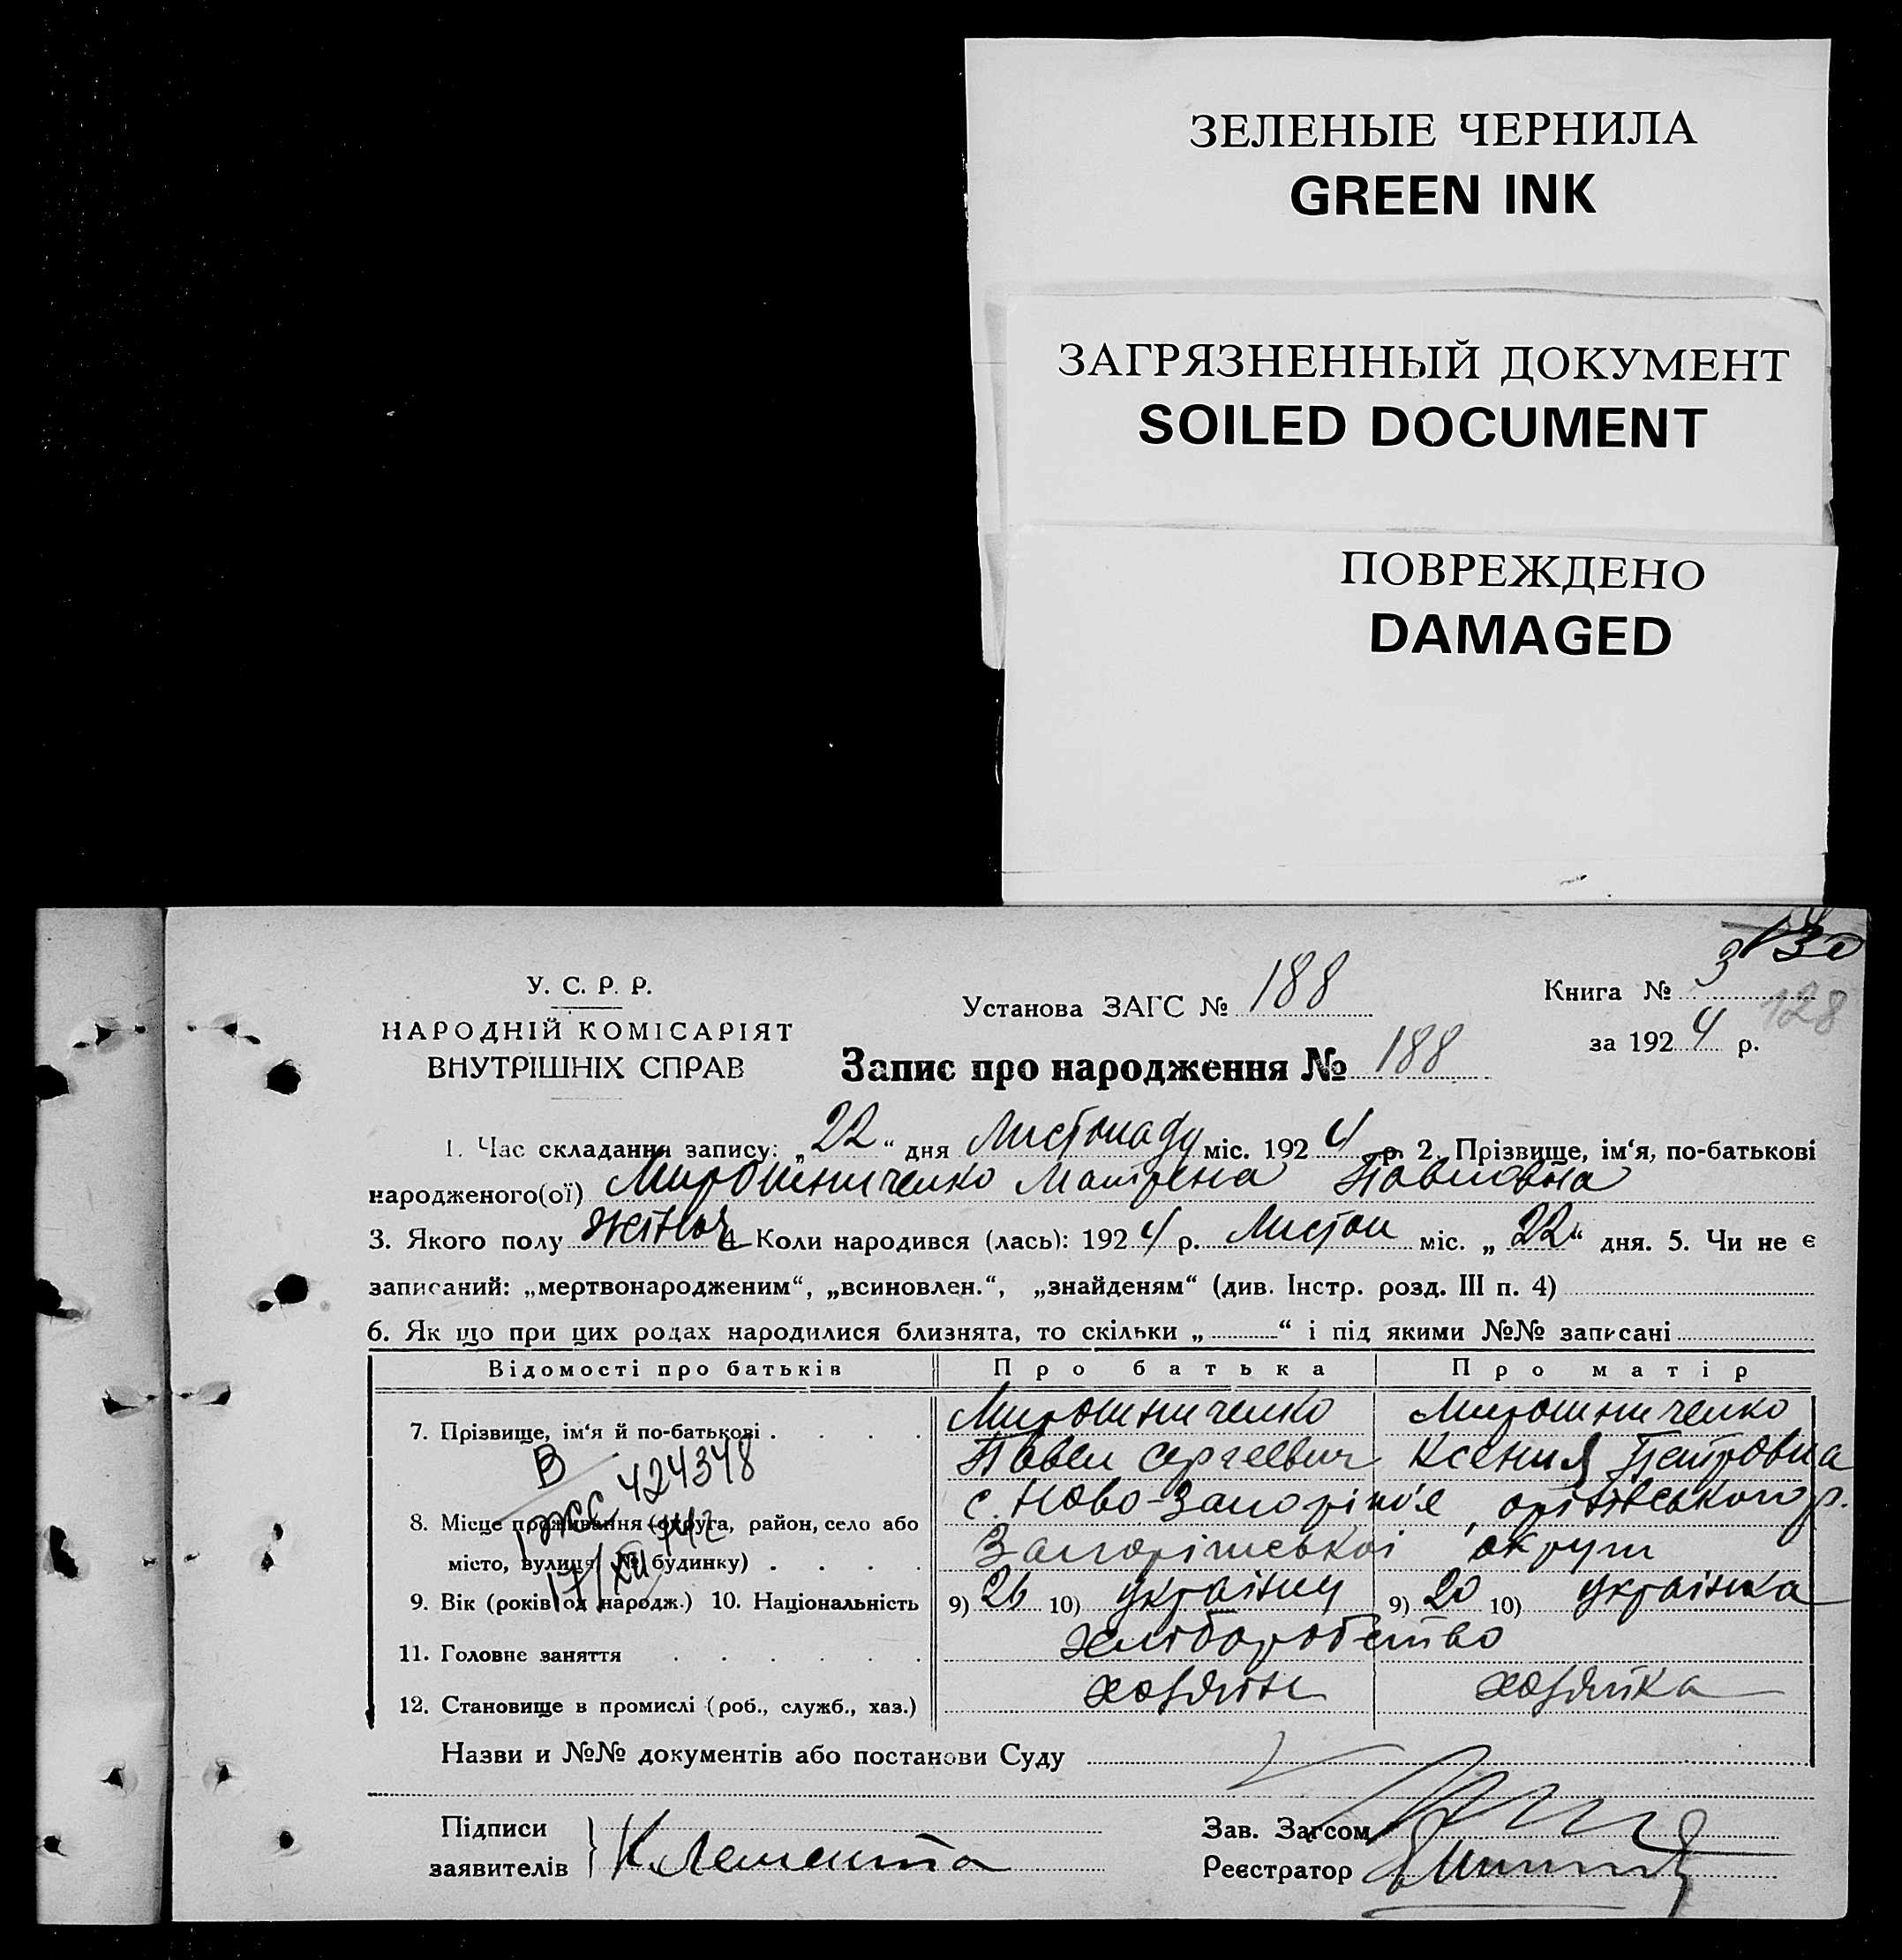 ЗЕЛЕНЫЕ ЧЕРНИЛА
GREEN INK
ЗАГРЯЗНЕННЫЙ ДОКУМЕНТ
SOILED DOCUMENT
ПОВРЕЖДЕНО
DAMAGED
У. С. Р. Р.
НАРОДНІЙ КОМІСАРІЯТ
ВНУТРІШНІХ СПРАВ
Установа ЗАГС № 188
Книга № 3
128
за 1924 р.
Запис про народження № 188
1. Час складання запису: „22“ дня Листопаду міс. 1924 р. 2. Прізвище, ім‘я, по-батькові
народженого(ої) Мирошниченко Матрена Павловна
3. Якого полу 4. Коли народився (лась): 1924 р. Листоп міс. „22“ дня. 5. Чи не є
записаний: „мертвонародженим“, „всиновлен.“, „знайденям“ (див. Інстр. розд. III п. 4)
6. Як що при цих родах народилися близнята, то скільки „ “ і під якими №№ записані
Відомості про батьків Про батька Про матір
7. Прізвище, ім‘я й по-батькові Мирошниченко Павел Сергеевич Мирошниченко Ксения Петровна
В 424348
8. Місце проживання (округа, район, село або
місто, вулиця, № будинку) с. Ново-Запоріжʼя, оріхівського р.
Запоріжської округи
17/XII
9. Вік (років од народж.) 10. Національність 9) 26 10) українец 9) 20 10) українка
11. Головне заняття хліборобство
12. Становище в промислі (роб., служб., хаз.) хозяїн хозяйка
Назви и №№ документів або постанови Суду
Підписи
заявителів
Зав. Загсом
Реєстратор